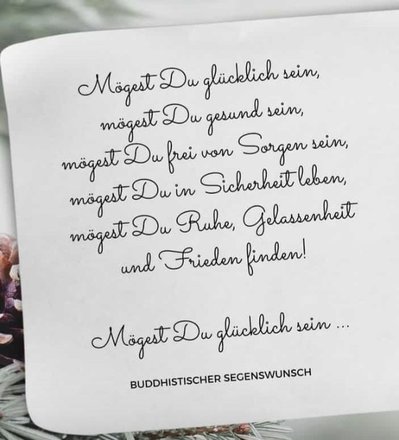 Mögest Du glücklich sein,
mögest Du gesund sein,
mögest Du frei von Sorgen sein,
mögest Du in Sicherheit leben,
mögest Du Ruhe, Gelassenheit
und Frieden finden!
Mögest Du glücklich sein ...
BUDDHISTISCHER SEGENSWUNSCH